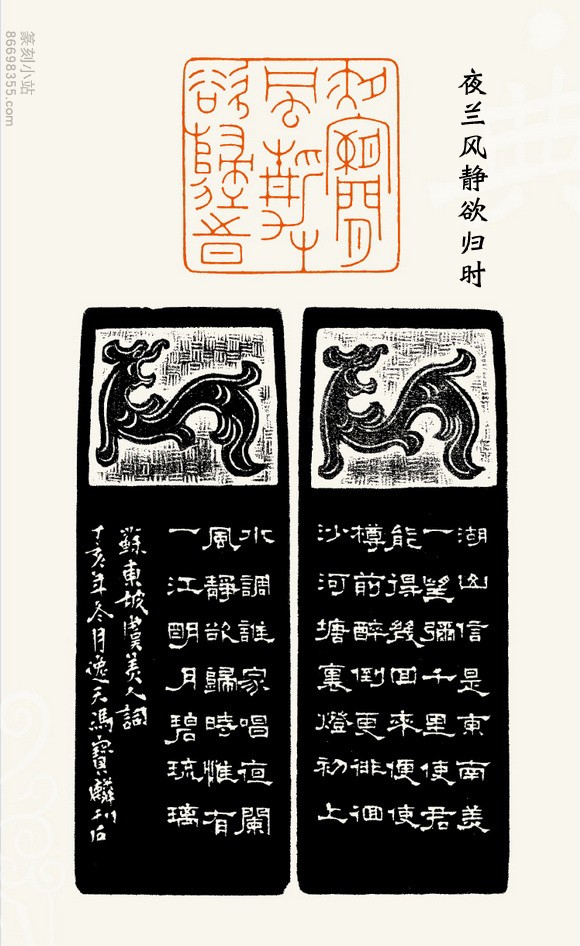 夜兰风静欲归时
夜闌
風靜
欲歸旹
湖山信是東南美
一望彌千里使君
能得幾回來便使
樽前醉倒更徘徊
沙河塘裏燈初上
水調誰家唱夜闌
風靜欲歸時惟有
一江明月碧琉璃
蘇東坡虞美人詞
丁亥年冬月逸天馮寶麟刊石
篆刻小站
86698355.com